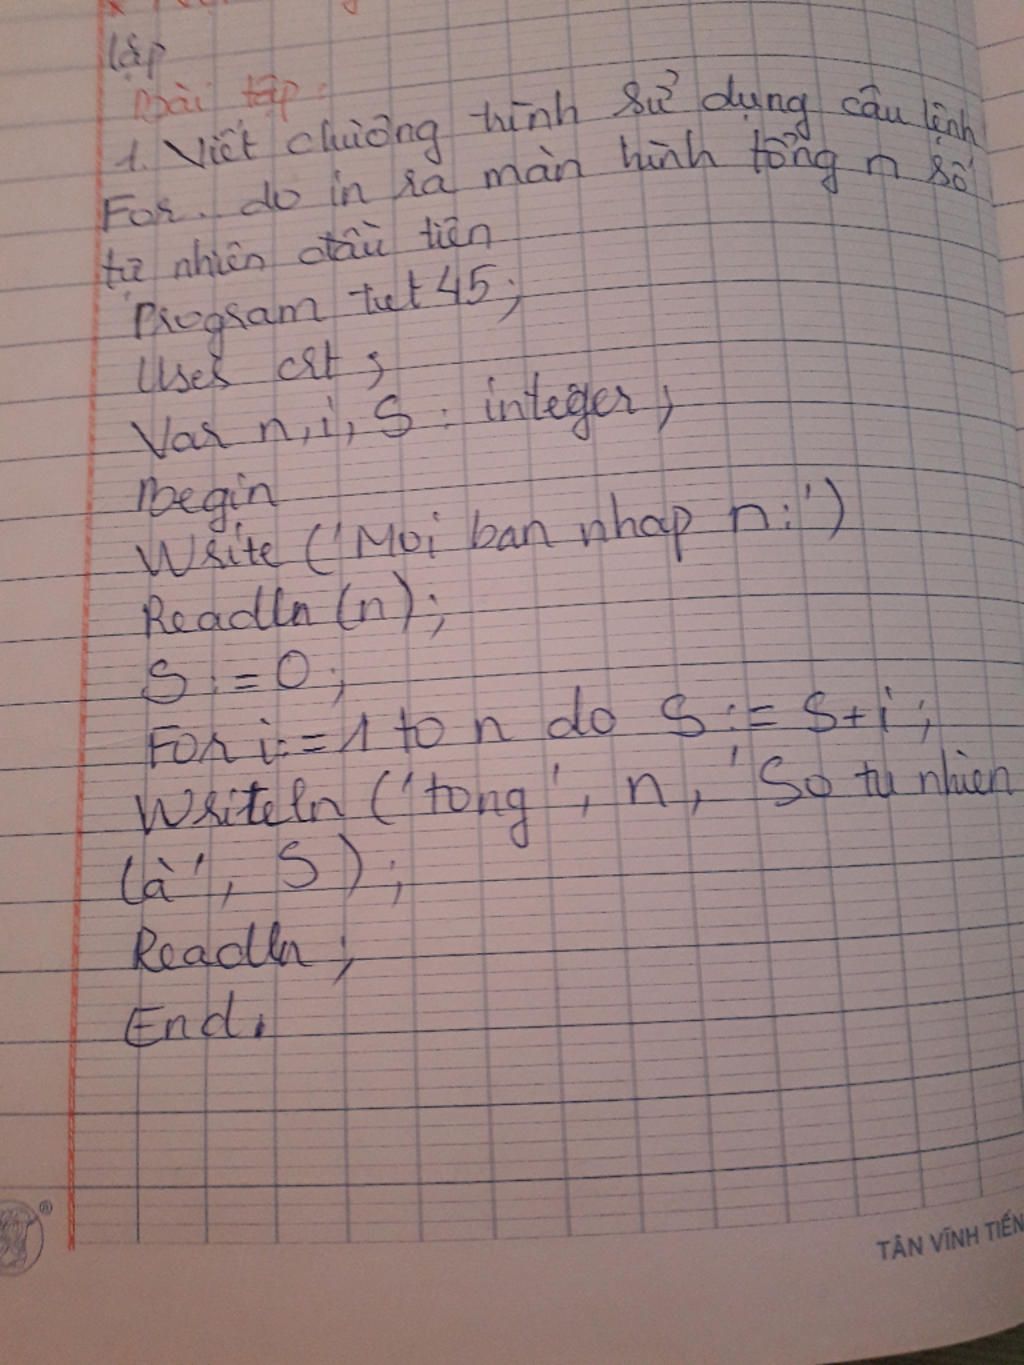 lặp
Bài tập:
1. Viết chương trình sử dụng câu lệnh
For..do in ra màn hình tổng n số
tự nhiên đầu tiên
Program tiet 45;
Uses crt;
Var n, i, S : integer;
Begin
Write ('Moi ban nhap n:')
Readln (n);
S := 0;
For i:=1 to n do S := S+i;
Writeln ('tong', n, 'So tu nhien
là', S);
Readln;
End.
®
TÂN VĨNH TIẾN